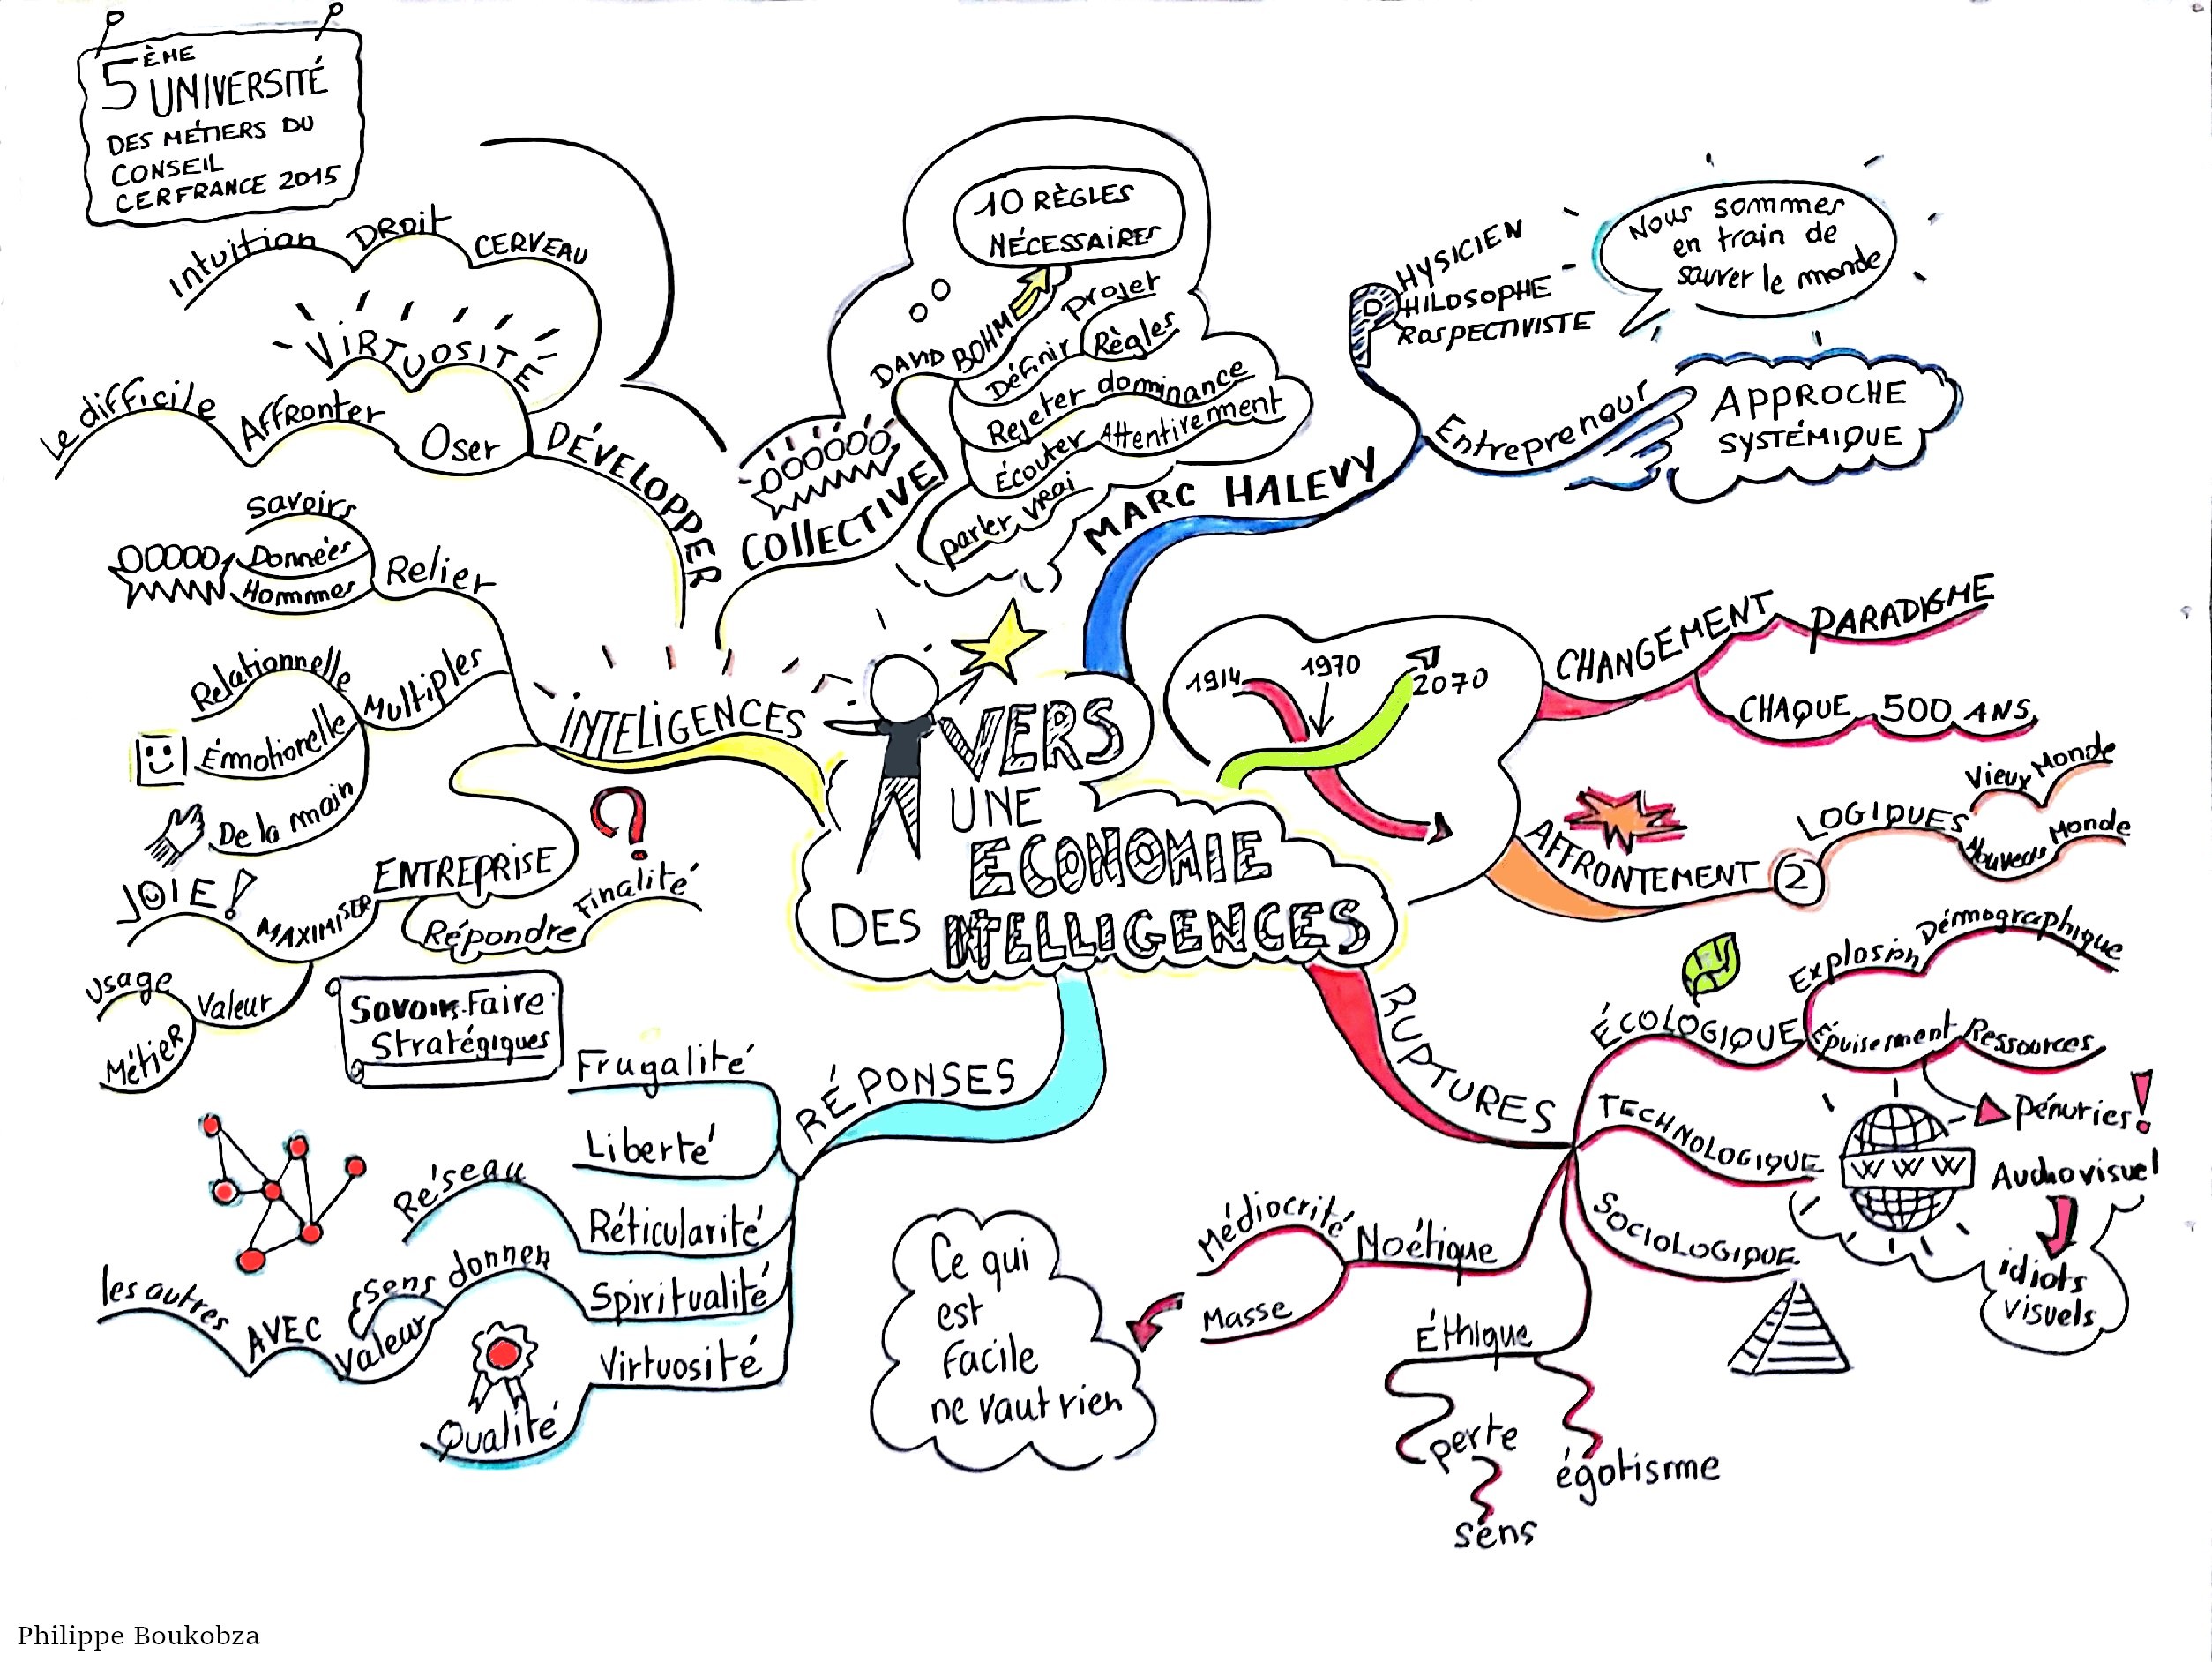 5ÈME
UNIVERSITÉ
DES MÉTIERS DU
CONSEIL
CERFRANCE 2015
VERS
UNE
ECONOMIE
DES INTELLIGENCES
MARC HALEVY
PHYSICIEN
PHILOSOPHE
PROSPECTIVISTE
Nous sommes
en train de
sauver le monde
Entrepreneur
APPROCHE
SYSTÉMIQUE
1914
1970
2070
CHANGEMENT PARADIGME
CHAQUE 500 ANS
AFFRONTEMENT 2
LOGIQUES
Vieux Monde
Nouveau Monde
RUPTURES
ÉCOLOGIQUE
Explosion Démographique
Épuisement Ressources
Pénuries!
TECHNOLOGIQUE
WWW
Audiovisuel
idiots
visuels
SOCIOLOGIQUE
Éthique
perte
sens
égotisme
Noétique
Médiocrité
Masse
Ce qui
est
Facile
ne vaut rien
RÉPONSES
Frugalité
Liberté
Réticularité
Réseau
Spiritualité
donner
sens
Valeur
AVEC
les autres
Virtuosité
Qualité
INTELIGENCES
Relier
savoirs
Données
Hommes
Multiples
Relationnelle
Émotionelle
De la main
ENTREPRISE
Répondre Finalité
?
MAXIMISER
JOIE!
Valeur
Usage
Métier
Savoirs-Faire
Stratégiques
DÉVELOPPER
Oser
Affronter
Le difficile
VIRTUOSITÉ
Intuition DROit CERVEAU
COllECTIVE
DAVID BOHM
10 RÈGLES
NÉCESSAIRES
Définir
projet
Règles
Rejeter dominance
Écouter Attentivement
parler vrai
Philippe Boukobza